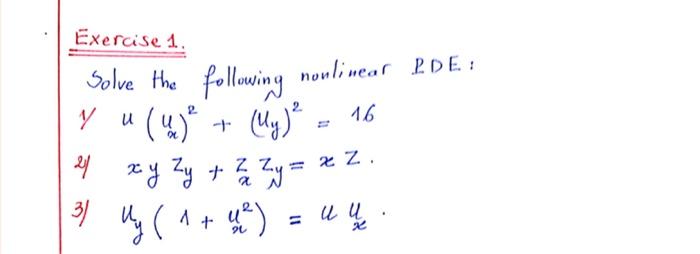 Exercise 1.
Solve the following nonlinear PDE :
1/ u (u_x)^2 + (u_y)^2 = 16
2/ x y z_y + z_x z_y = x z .
3/ u_y ( 1 + u_x^2 ) = u u_x .